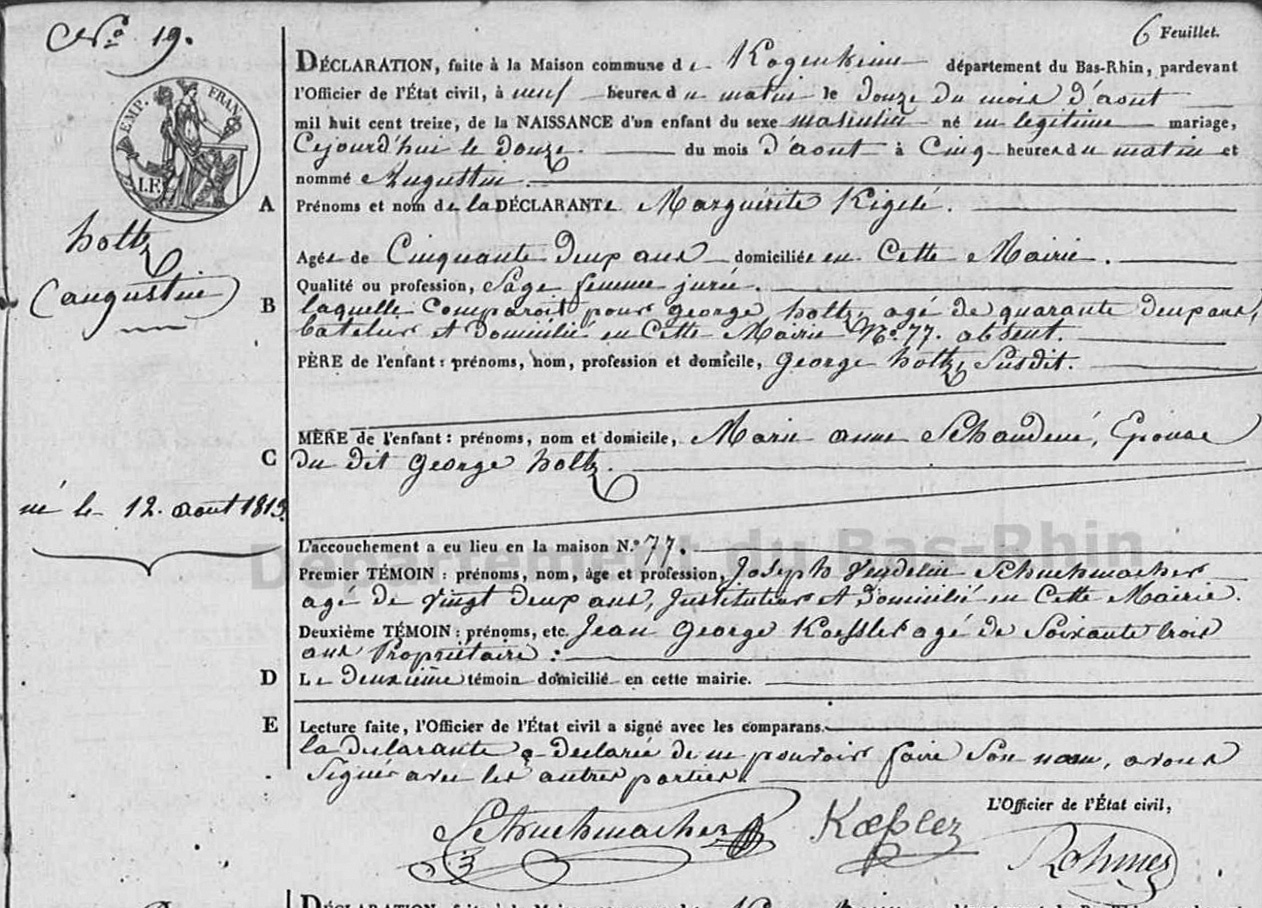 N.º 19.
6 Feuillet.
DÉCLARATION, faite à la Maison commune de Kogenheim département du Bas-Rhin, pardevant
l'Officier de l'État civil, à neuf heures du matin le douze du mois d'aout
mil huit cent treize, de la NAISSANCE d'un enfant du sexe masculin né en legitime mariage,
Cejourd'hui le douze du mois d'aout à Cinq heures du matin et
nommé Augustin.
EMP. FRAN
1 F
A Prénoms et nom de la DÉCLARANTE Marguérite Kigelé.
holtz
(augustin)
Agée de Cinquante deux ans domiciliée en Cette Mairie.
Qualité ou profession, Sage femme jurée.
B laquelle Comparoit pour george holtz, agé de quarante deux ans,
batelier et domicilié en Cette Mairie N.º 77. absent.
PÈRE de l'enfant : prénoms, nom, profession et domicile, george holtz, Susdit.
MÈRE de l'enfant : prénoms, nom et domicile, Marie anne Schaudené, Epouse
C du dit george holtz.
né le 12. aout 1813.
L'accouchement a eu lieu en la maison N.º 77.
Département du Bas-Rhin
Premier TÉMOIN : prénoms, nom, âge et profession, Joseph Vendelin Schuhmacher
agé de vingt deux ans, Instituteur et domicilié en Cette Mairie.
Deuxième TÉMOIN : prénoms, etc. Jean George Koessler agé de Soixante trois
ans Propriétaire :
D Le deuxieme témoin domicilié en cette mairie.
E Lecture faite, l'Officier de l'État civil a signé avec les comparans.
la declarante a declarée de ne pouvoir faire Son nom, avons
Signés avec les autres parties.
L'Officier de l'État civil,
Schuhmacher Kœßler Rohmer
DÉCLARATION, faite à la Maison commune de